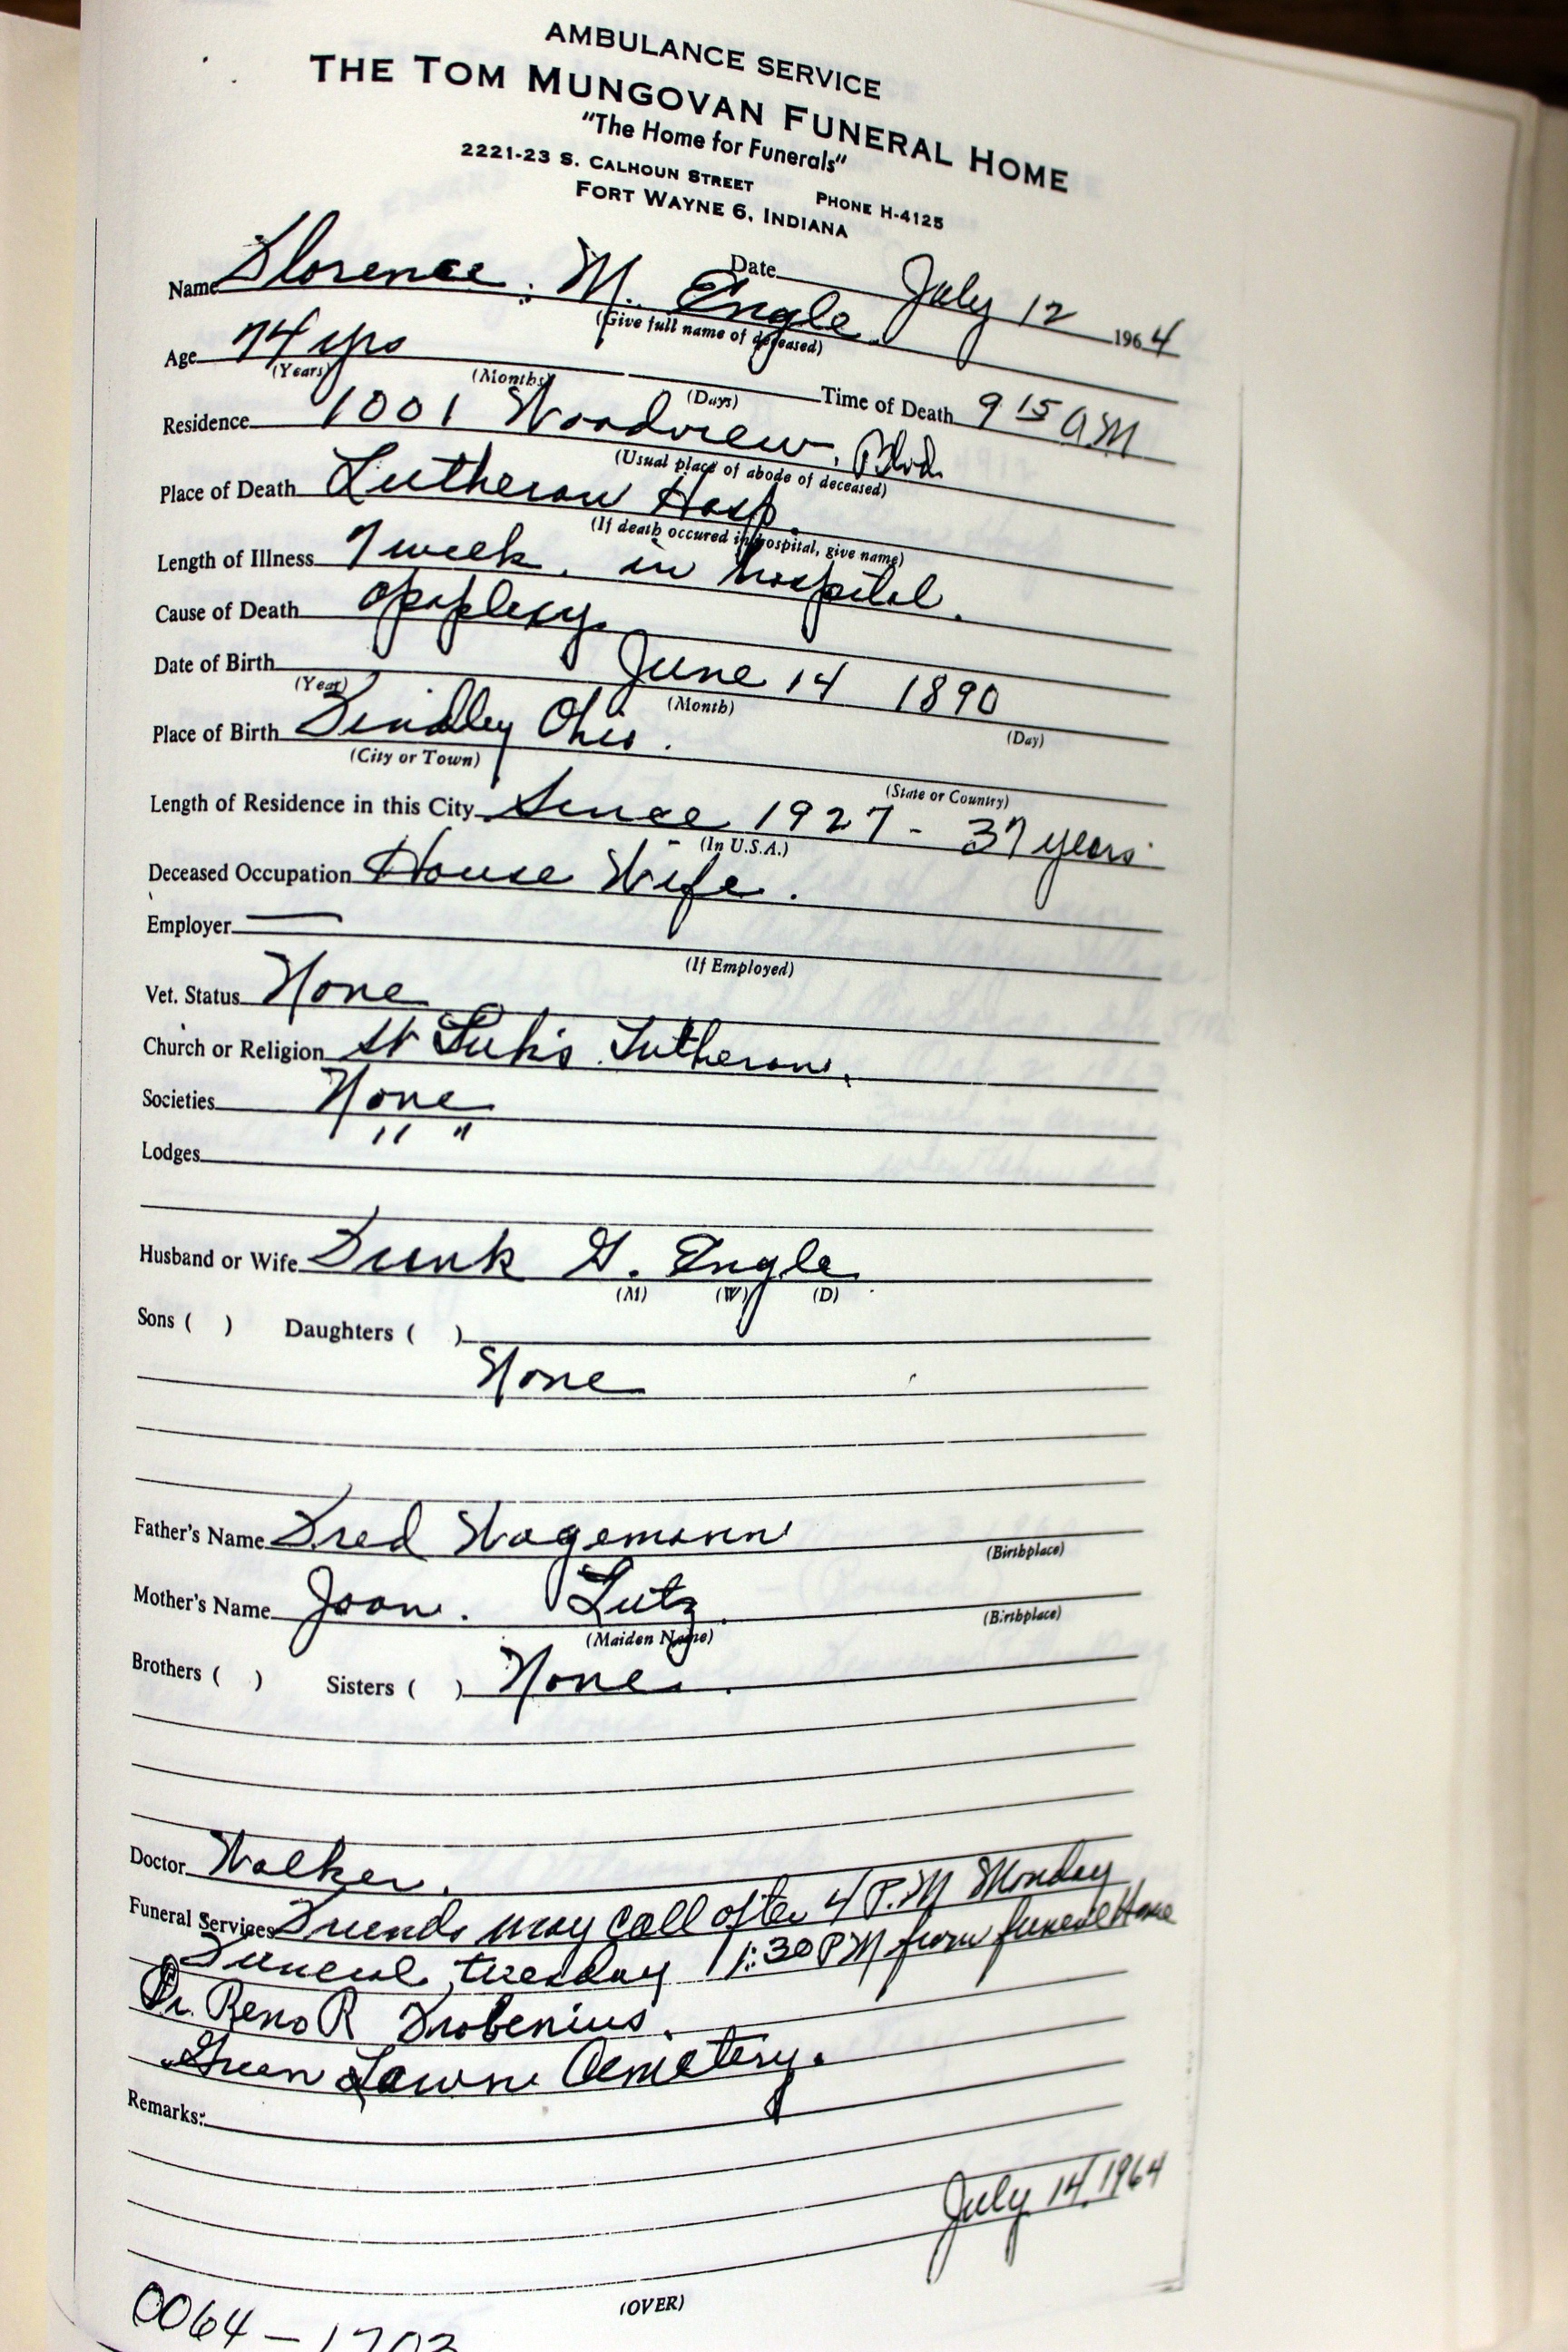 AMBULANCE SERVICE
THE TOM MUNGOVAN FUNERAL HOME
"The Home for Funerals"
2221-23 S. CALHOUN STREET PHONE H-4125
FORT WAYNE 6, INDIANA
Date July 12 1964
Name Florence. M. Engle
(Give full name of deceased)
Age 74 yrs Time of Death 9 15 AM
(Years) (Months) (Days)
Residence 1001 Woodview, Blvd.
(Usual place of abode of deceased)
Place of Death Lutheran Hosp.
(If death occured in hospital, give name)
Length of Illness 1 week. in hospital.
Cause of Death apoplexy.
Date of Birth June 14 1890
(Year) (Month) (Day)
Place of Birth Findley Ohio.
(City or Town) (State or Country)
Length of Residence in this City Since 1927 - 37 years
(In U.S.A.)
Deceased Occupation House Wife.
Employer —
(If Employed)
Vet. Status None
Church or Religion St Luk's Lutheran.
Societies None
Lodges " "
Husband or Wife Frank G. Engle
(M) (W) (D)
Sons ( ) Daughters ( )
None
Father's Name Fred Wagemann
(Birthplace)
Mother's Name Joan. Lutz
(Maiden Name) (Birthplace)
Brothers ( ) Sisters ( ) None.
Doctor Walker.
Funeral Services Friends may call after 4 P.M Monday
Funeral, tuesday 1:30 PM from funeral Home
Dr. Reno R Frobenius.
Green Lawn Cemetery.
Remarks:
July 14, 1964
(OVER)
0064-1703